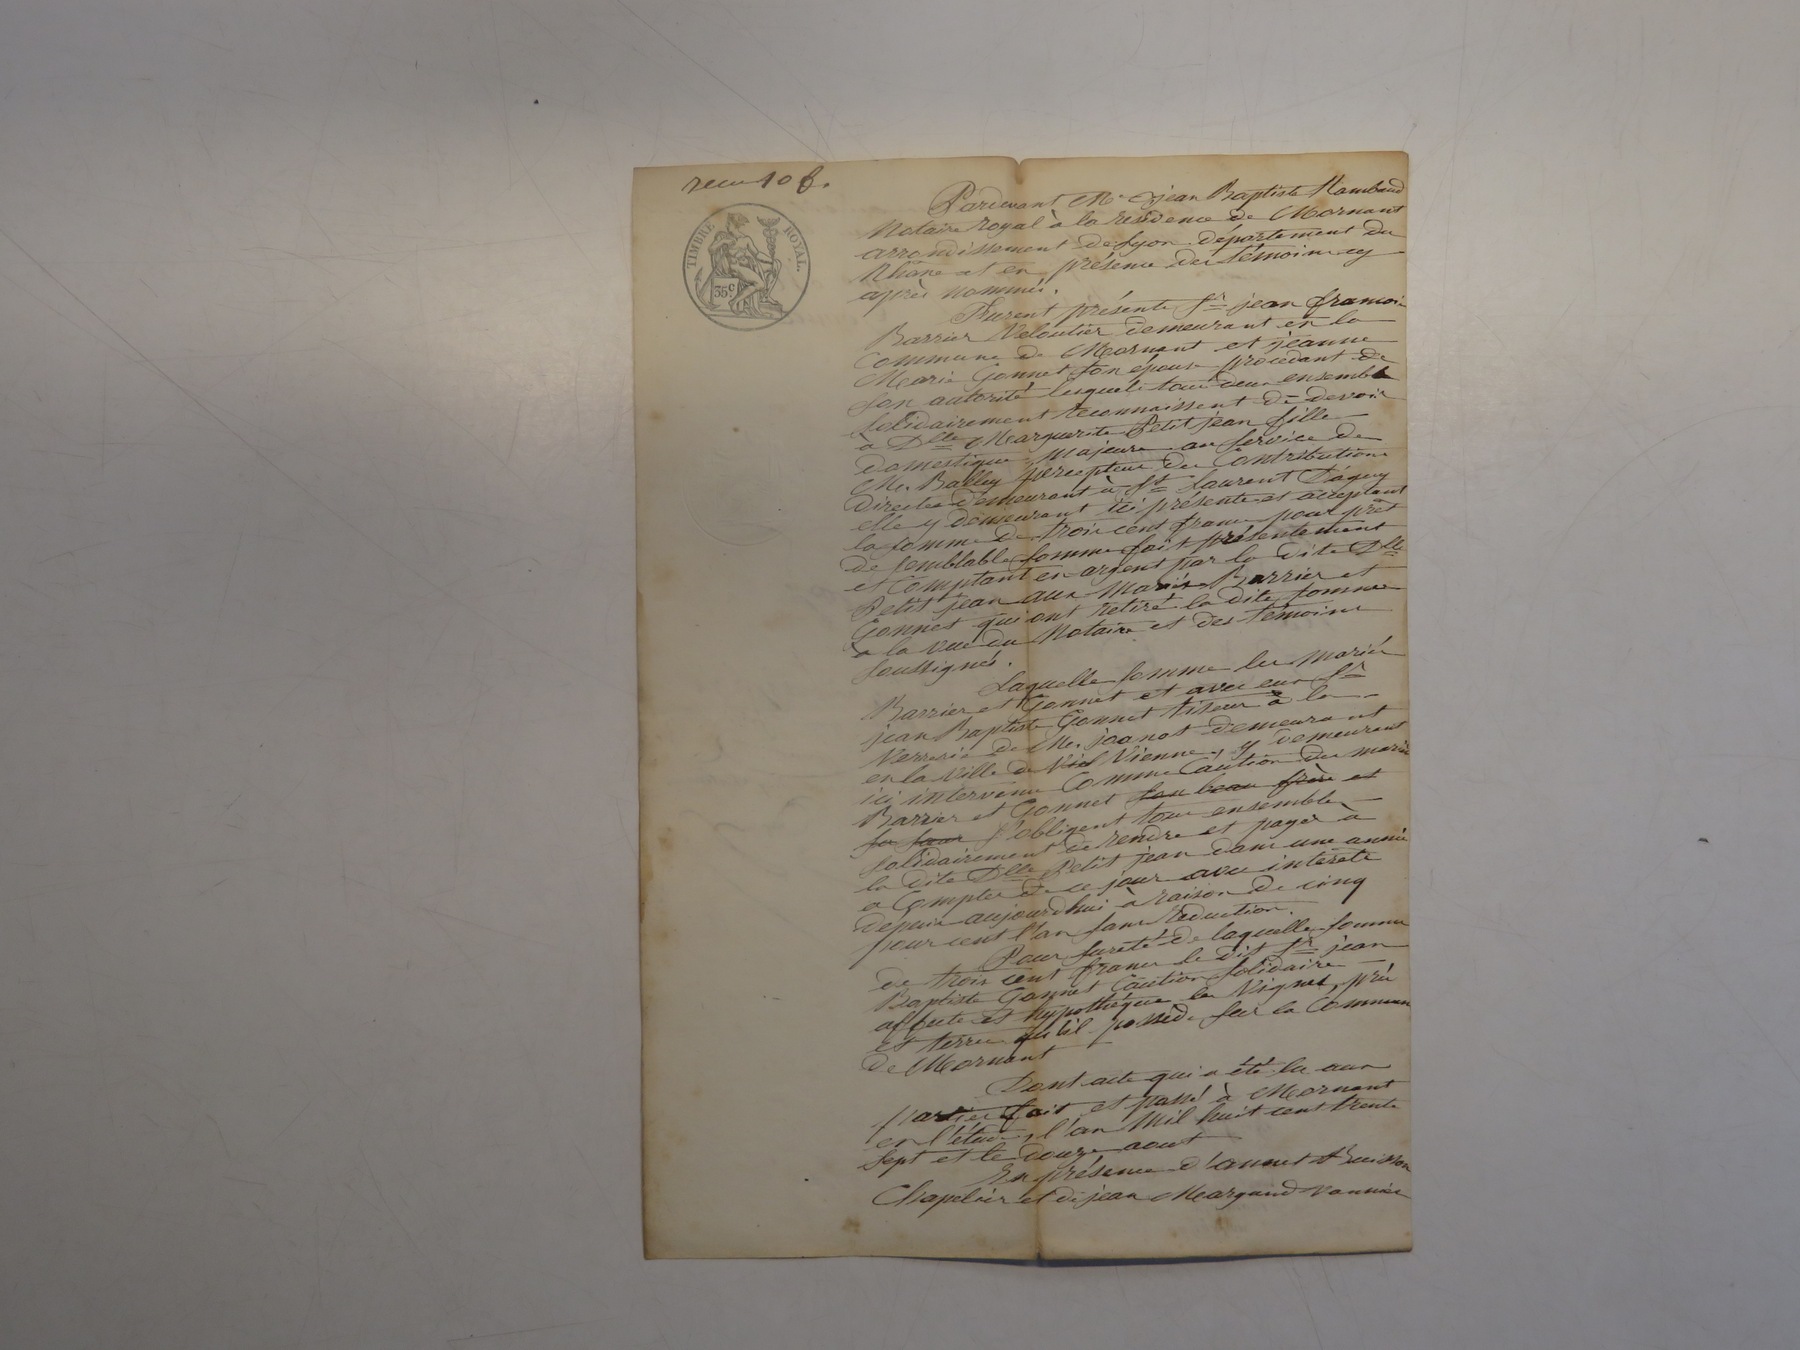 recu 10 f.
TIMBRE ROYAL.
35c
Pardevant Me jean Baptiste Rambaud
Notaire royal à la résidence de Mornant
arrondissement de Lyon département du
Rhône et en présence des témoins cy
après nommés.
Furent présents Sr jean francois
Barrier Veloutier demeurant en la
Commune de Mornant et jeanne
Marie Gonnet son épouse procédant de
son autorité lesquels tous deux ensemble
solidairement reconnaissent de devoir
à Dlle Marguerite Petit jean fille
domestique majeure au service de
Mr. Bally percepteur des Contributions
Directes demeurant à St Laurent D'agny
elle y demeurant ici présente et acceptant
la somme de trois cent francs pour prêt
de semblable somme fait présentement
et Comptant en argent par la dite Dlle
Petit jean aux Mariés Barrier et
Gonnet qui ont retiré la dite somme
à la vue du Notaire et des témoins
soussignés.
Laquelle somme les mariés
Barrier et Gonnet et avec eux Sr
jean Baptiste Gonnet tiseur à la
Verrerie de Mr. demeurant
en la ville de Vienne, y demeurant
ici intervenu Comme Caution des mariés
Barrier et Gonnet son beau frère et
sa soeur s'obligent tous ensemble
solidairement de rendre et payer à
la dite Dlle Petit jean dans une année
a Compter de ce jour avec intérets
depuis aujourdhui à raison de cinq
pour cent l'an sans réduction.
Pour sureté de laquelle somme
de trois cent francs le dit Sr jean
Baptiste Gonnet Caution solidaire
affecte et hypothéque les Vignes, prés
et terres qu'il possède sur la Commune
de Mornant
Dont acte qui a été lu aux
parties fait et passé à Mornant
en l'étude, l'an Mil huit cent trente
sept et le douze aout
En présence d' Buisson
Chapelier et de jean Margand vannier